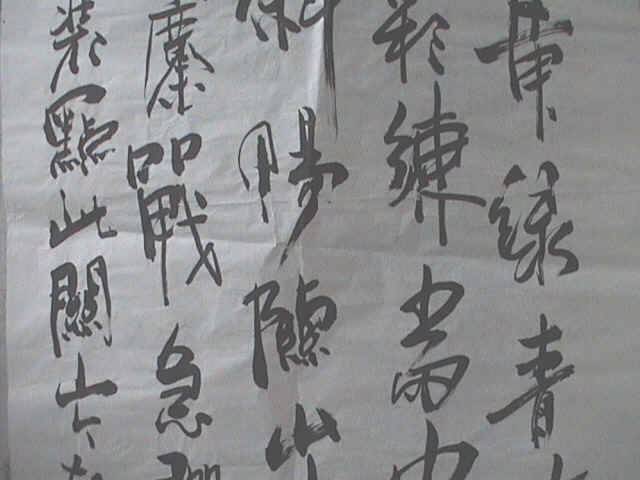 黃綠青
彩練當
斜陽關山
鏖戰急
裝點此關山今